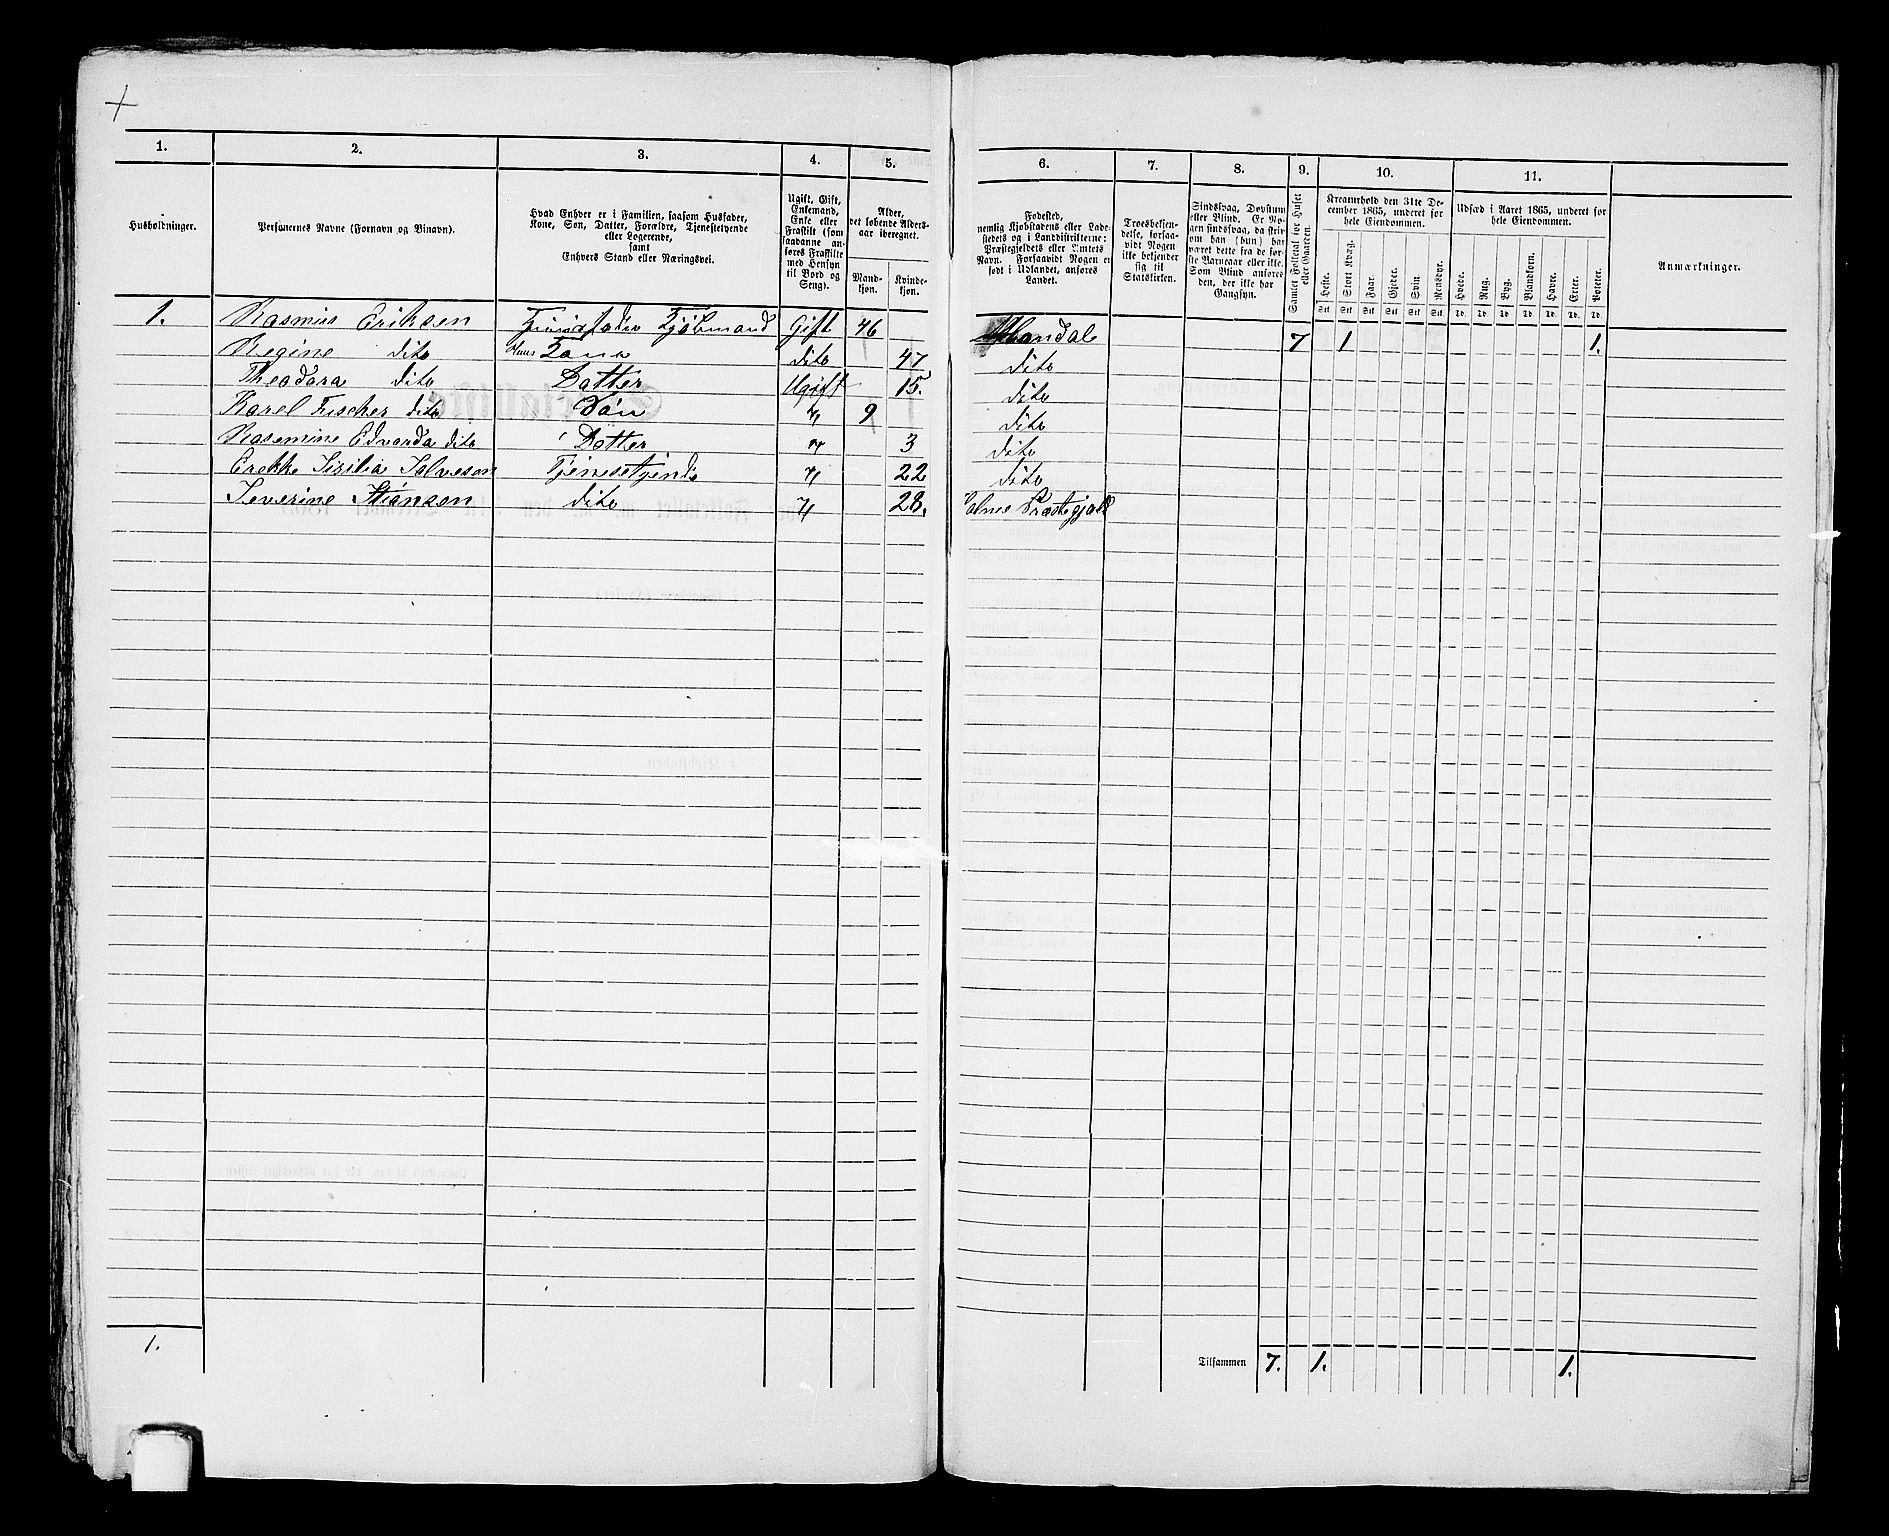 1. 2. 3. 4. 5. 6. 7. 8. 9. 10. 11.
Husholdninger.
Personernes Navne (Fornavn og Binavn).
Hvad Enhver er i Familien, saasom Husfader,
Kone, Søn, Datter, Forældre, Tjenestetyende
eller Logerende,
samt
Enhvers Stand eller Næringsvei.
Ugift, Gift,
Enkemand,
Enke eller
Fraskilt (som
saadanne an-
føres Fraskilte
med Hensyn
til Bord og
Seng).
Alder,
det løbende Alders-
aar iberegnet.
Mand-
kjøn.
Kvinde-
kjøn.
Fødested,
nemlig Kjøbstadens eller Lade-
stedets og i Landdistrikterne:
Præstegjeldets eller Amtets
Navn. Forsaavidt Nogen er
født i Udlandet, anføres
Landet.
Troesbekjen-
delse, forsaa-
vidt Nogen
ikke bekjender
sig til
Statskirken.
Sindssvag, Døvstum
eller Blind. Er No-
gen sindssvag, da skri-
ves om han (hun) har
været dette fra de før-
ste Barneaar eller ikke.
Som Blind anføres
den, der ikke har
Gangsyn.
Samlet Folketal for Huset
eller Gaarden.
Kreaturhold den 31te De-
cember 1865, underet for
hele Eiendommen.
Heste. Stort Kvæg. Faar. Gjeder. Svin. Rensdyr.
Stk Stk Stk Stk Stk Stk
Udsæd i Aaret 1865, underet for
hele Eiendommen.
Hvede. Rug. Byg. Blandkorn. Havre. Erter. Poteter.
Td. Td. Td. Td. Td. Td. Td.
Anmærkninger.
1. Rasmus Eriksen Kjøbmand Gift 46 Mandal 7 1 1.
Regine dito Huus Kone dito 47 dito
Theodora dito Datter Ugift 15. dito
Karel Fischer dito Søn " 9 dito
Rasmine Edvarda dito Datter " 3 dito
Sisilia Salveson Tjenestetyende " 22 dito
Severine dito " 28. Præstegjeld
1. Tilsammen 7. 1. 1.